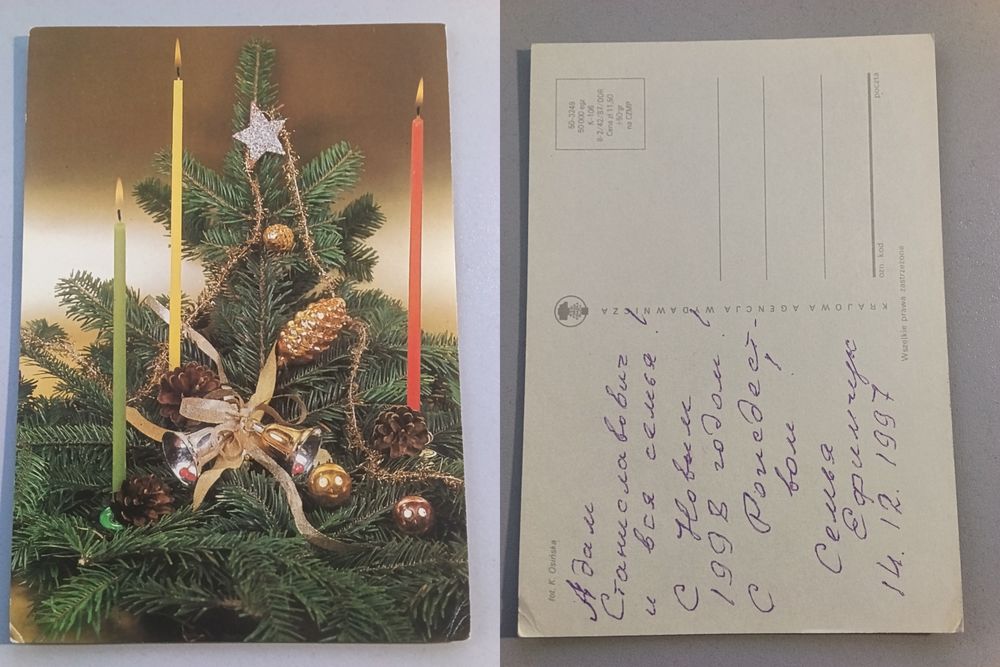 Адам
Станиславович
и вся семья!
С Новым
1998 годом!
С Рождест-
вом!
Семья
Ефимчук
14. 12. 1997
fot. K. Osińska
KRAJOWA AGENCJA WYDAWNICZA
Wszelkie prawa zastrzeżone
60-3248
50 000 egz
K-106
II-2/42/87/DDR
Cena zł 11,50
+50 gr
na CZMP
poczta
ozn. kod.